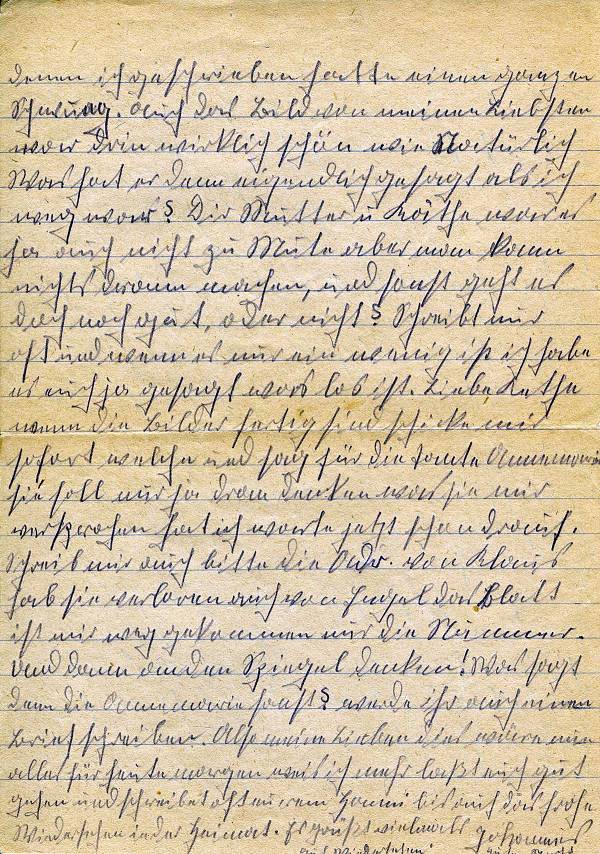 denen ich geschrieben hatte einen ganzen
Schwung. Auch das Bild von meinen Liebsten
war drin wirklich schön wie Natürlich
Was hat er denn eigendlich gesagt als ich
weg war? Dir Mutter u Käthe war es
ja auch nicht zu Mute aber man kann
nichts dran machen, und sonst geht es
doch noch gut, oder nicht? Schreibt mir
oft und wenn es nur ein wenig ist ich habe
es euch ja gesagt was los ist. Liebe Kethe
wenn die Bilder fertig sind schicke mir
sofort welche und sag für die Tante Annemarie
sie soll nur ja dran denken was sie mir
versprochen hat ich warte jetzt schon drauf.
Schreib mir auch bitte die Adr. von Klaus
hab sie verloren auch von Jugel das Blatt
ist mir weg gekommen nur die Nummer.
und dann an den Spiegel denken! Was sagt
denn die Annemarie sonst? werde ihr auch einen
Brief schreiben. Also meine Lieben dies wäre nun
alles für heute morgen weis ich mehr laßt euch gut
gehen und schreibet oft eurem Hanni bis auf das frohe
Wiedersehen in der Heimat. Es grüßt vielmals Johannes
Auf Wiedersehen!